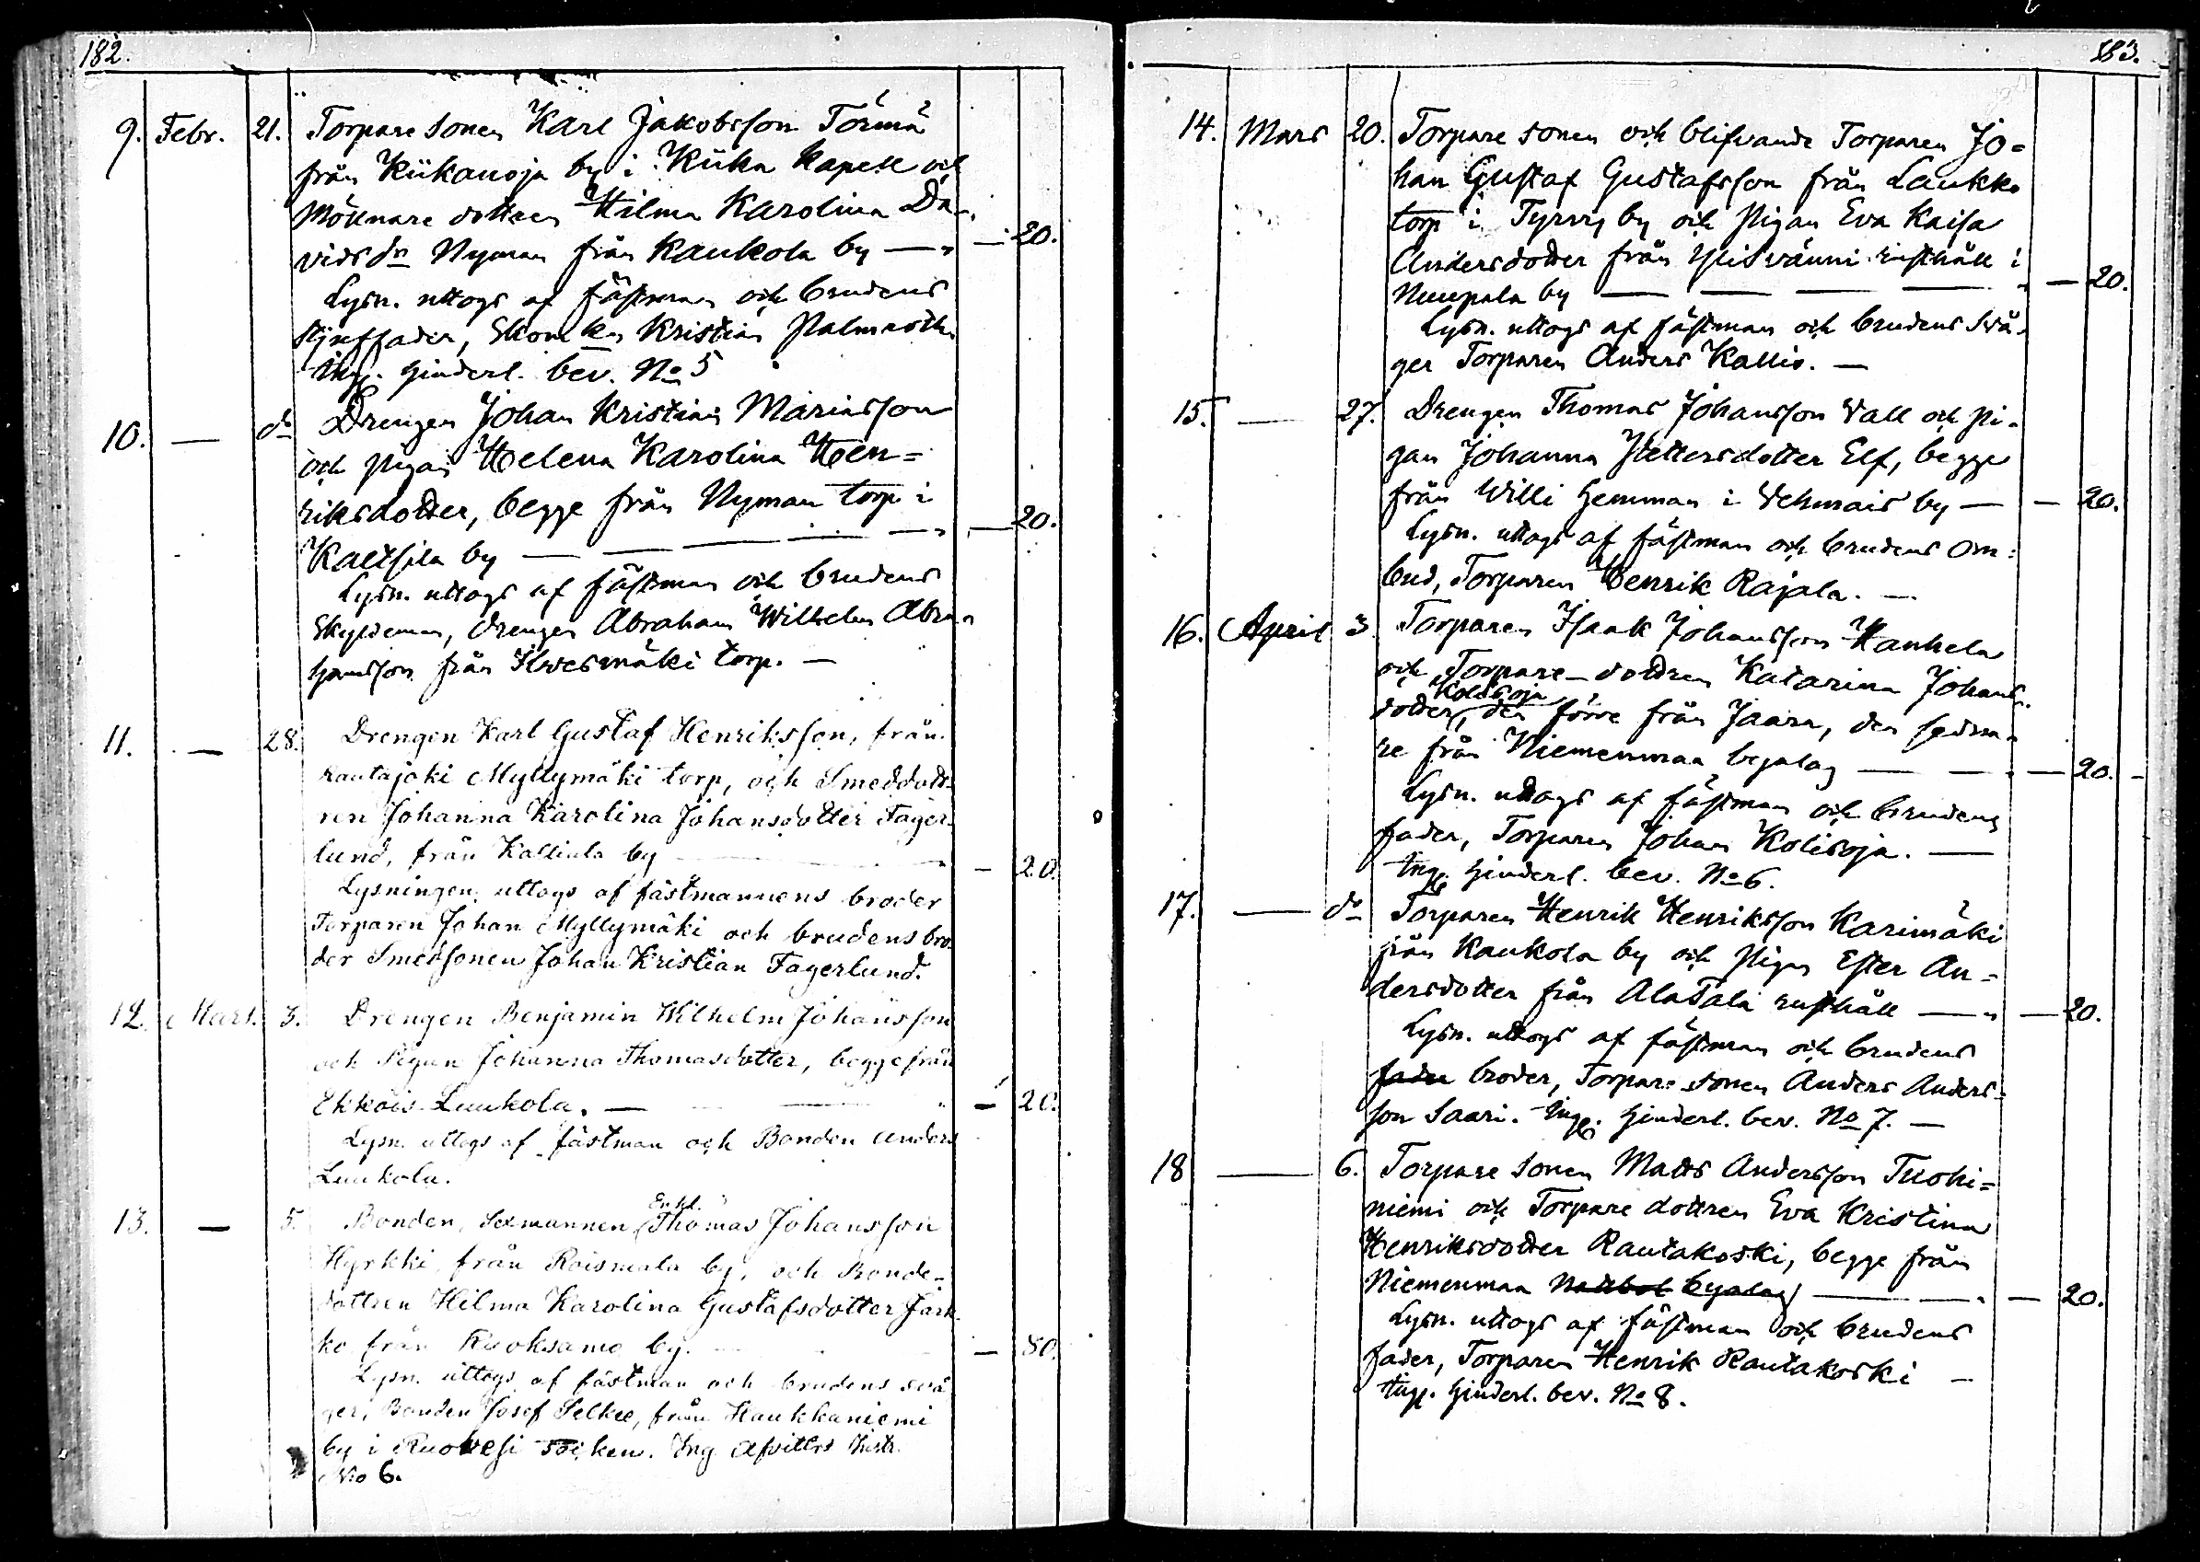 182.
9. Febr. 21. Torpare sonen Karl Jakobsson Törmä
från Kiikanoja by i Kiika Kapell och
Mölnare dottern Hilma Karolina Da-
vidsdr Nyman från Kaukola by — " — 20.
Lysn. uttogs af fästman och brudens
styffader, Skom. Kristian Palmroth.
Ing. Hinderl. bev. No 5
10. — do Drengen Johan Kristian Mariasson
och pigan Helena Karolina Hen-
riksdotter, begge från Nyman torp i
Kaltsila by — — — — " — 20.
Lysn. uttogs af fästman och brudens
Skyldeman, drengen Abraham Wilhelm Abra-
hamsson från Ilvesmäki torp. —
11. — 28. Drengen Karl Gustaf Henriksson, från
Rautajoki Myllymäki torp, och Smeddott-
ren Johanna Karolina Johansdotter Fager-
lund, från Kalliala by — " — 20.
Lysningen uttogs af fästmannens broder
Torparen Johan Myllymäki och brudens bro-
der Smedsonen Johan Kristian Fagerlund.
12. Mars. 3. Drengen Benjamin Wilhelm Johansson
och Pigan Johanna Thomasdotter, begge från
Ekkois Luukola. — — " — 20.
Lysn. uttogs af fästman och Bonden Anders
Luukola.
13. — 5. Bonden, Sexmannen Enkl. Thomas Johansson
Hyrkki, från Roismala by, och Bonde-
dottren Hilma Karolina Gustafsdotter Jaak-
ko från Ruoksamo by. — 80.
Lysn. uttogs af fästman och brudens svå-
ger, Bonden Josef Selkee, från Haukkaniemi
by i Ruovesi socken. Ing. Afvittrs Instr.
No 6.
183.
14. Mars 20. Torpare sonen och blifvande Torparen Jo-
han Gustaf Gustafsson från Laukko
torp i Tyrvis by och Pigan Eva Kaisa
Andersdotter från Ylistvänni rusthåll i
Nuupala by — — — — " — 20.
Lysn. uttogs af fästman och brudens svå-
ger Torparen Anders Kallio. —
15. — 27. Drengen Thomas Johansson Vall och pi-
gan Johanna Pettersdotter Elf, begge
från Willi Hemman i Vehmais by — — 20.
Lysn. uttogs af fästman och brudens om-
bud, Torparen Henrik Rajala. —
16. April 3 Torparen Isaak Johansson Hanhela
och Torpare-dottren Katarina Johans-
dotter Kolisoja, den förre från Jaara, den sedna-
re från Niemenmaa byalag — — — 20. -
Lysn. uttogs af fästman och brudens
fader, Torparen Johan Kolisoja. —
Ing. Hinderl. bev. No 6.
17. — do Torparen Henrik Henriksson Karimäki
från Kaukola by och Pigan Ester An-
dersdotter från AlaTala rusthåll — " — 20.
Lysn. uttogs af fästman och brudens
fader broder, Torpare sonen Anders Anders-
son Saari. Ing. Hinderl. bev. No 7. —
18 — 6. Torpare sonen Matts Andersson Tuohi-
niemi och Torpare dottren Eva Kristina
Henriksdotter Rautakoski, begge från
Niemenmaa byalag — — " — 20.
Lysn. uttogs af fästman och brudens
fader, Torparen Henrik Rautakoski —
Ing. Hinderl. bev. No 8.